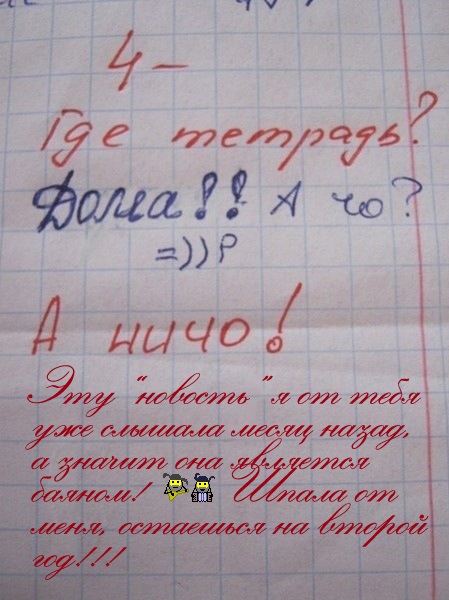 4-
Где тетрадь?
Дома!! А чо?
=))Р
А ничо!
Эту "новость" я от тебя
уже слышала месяц назад,
а значит она является
баяном! Шпала от
меня, остаешься на второй
год!!!